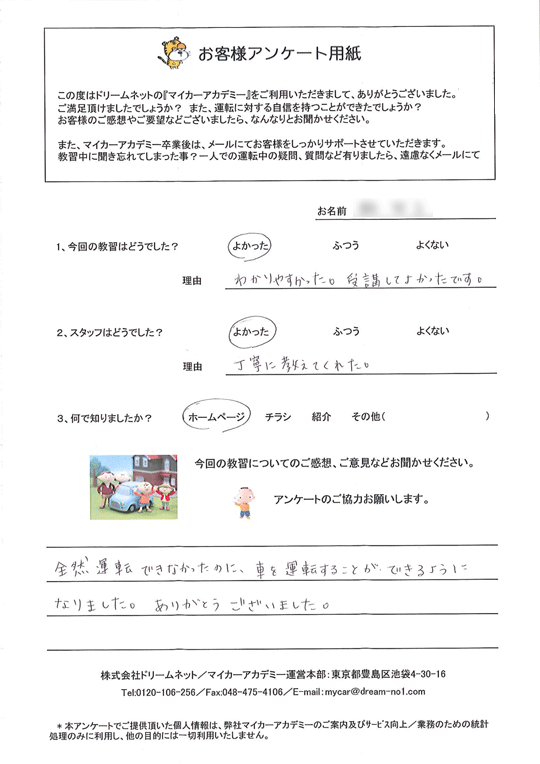 お客様アンケート用紙
この度はドリームネットの『マイカーアカデミー』をご利用いただきまして、ありがとうございました。
ご満足頂けましたでしょうか？ また、運転に対する自信を持つことができたでしょうか？
お客様のご感想やご要望などございましたら、なんなりとお聞かせください。
また、マイカーアカデミー卒業後は、メールにてお客様をしっかりサポートさせていただきます。
教習中に聞き忘れてしまった事？一人での運転中の疑問、質問など有りましたら、遠慮なくメールにて
お名前
1、今回の教習はどうでした？ よかった ふつう よくない
理由 わかりやすかった。受講してよかったです。
2、スタッフはどうでした？ よかった ふつう よくない
理由 丁寧に教えてくれた。
3、何で知りましたか？ ホームページ チラシ 紹介 その他( )
今回の教習についてのご感想、ご意見などお聞かせください。
アンケートのご協力お願いします。
全然運転できなかったのに、車を運転することができるように
なりました。ありがとうございました。
株式会社ドリームネット／マイカーアカデミー運営本部：東京都豊島区池袋4-30-16
Tel:0120-106-256／Fax:048-475-4106／E-mail:mycar@dream-no1.com
＊本アンケートでご提供頂いた個人情報は、弊社マイカーアカデミーのご案内及びサービス向上／業務のための統計
処理のみに利用し、他の目的には一切利用いたしません。